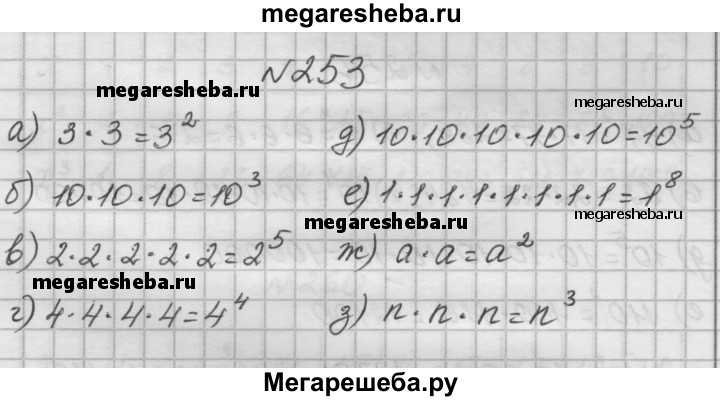 megaresheba.ru
№253
megaresheba.ru
megaresheba.ru
а) 3·3=3²
д) 10·10·10·10·10=10⁵
б) 10·10·10=10³
е) 1·1·1·1·1·1·1·1=1⁸
megaresheba.ru
megaresheba.ru
в) 2·2·2·2·2=2⁵
ж) a·a=a²
megaresheba.ru
г) 4·4·4·4=4⁴
з) n·n·n=n³
Мегарешеба.ру